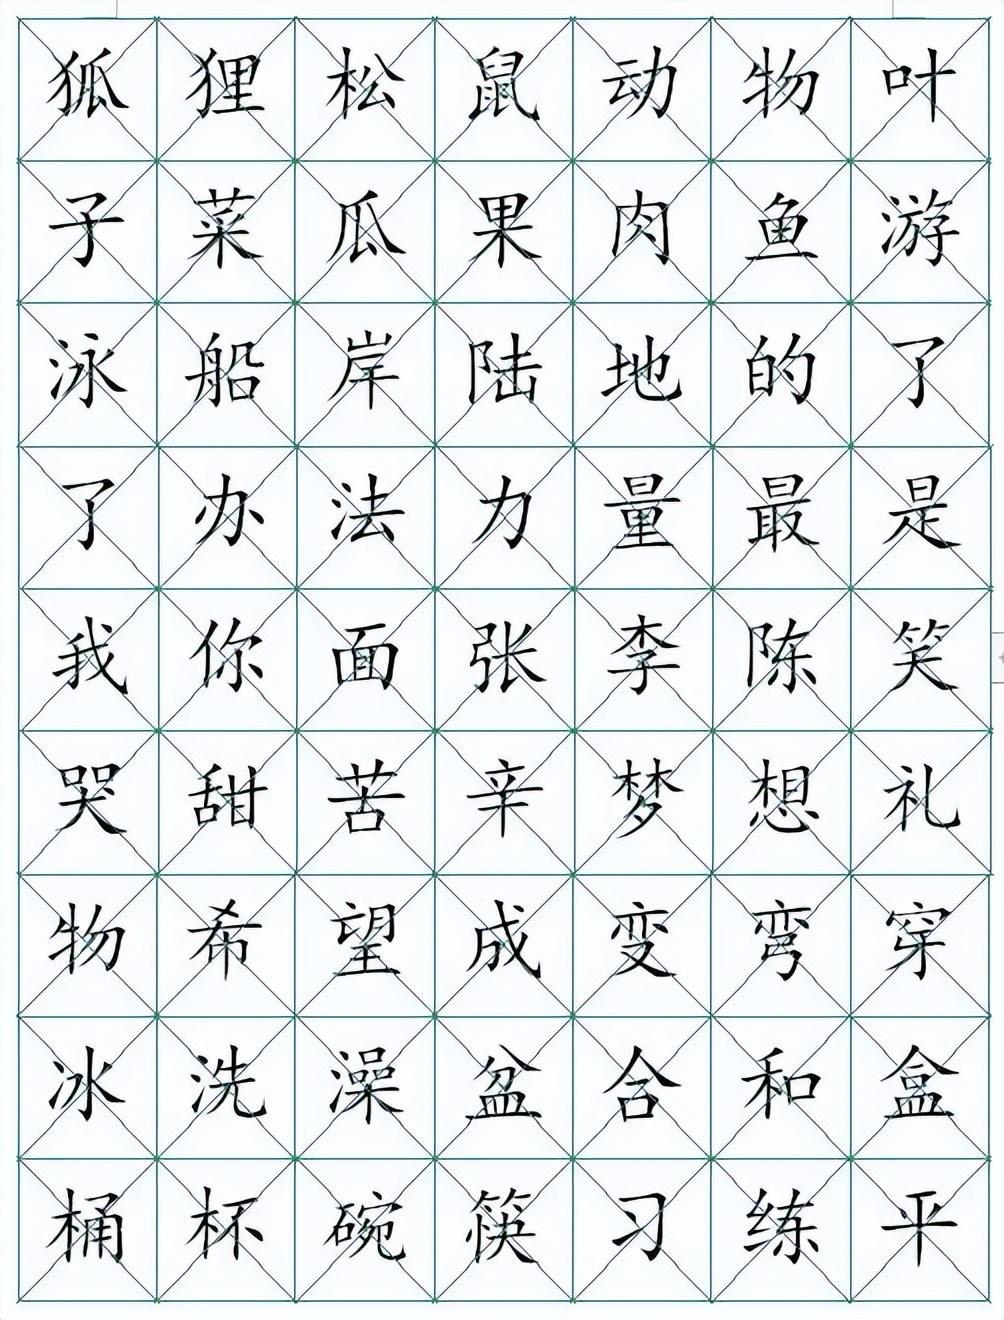 狐狸松鼠动物叶
子菜瓜果肉鱼游
泳船岸陆地的了
了办法力量最是
我你面张李陈笑
哭甜苦辛梦想礼
物希望成变弯穿
冰洗澡盆合和盒
桶杯碗筷习练平